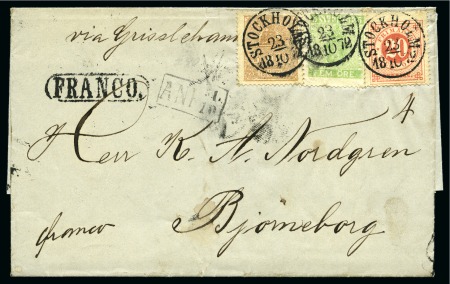 via Grisslehamn
STOCKHOLM
23
10
18 72
STOCKHOLM
23
10
18 72
STOCKHOLM
23
10
18 72
FEM ÖRE
20
FRANCO.
ANK
4
Herr K. A. Nordgren
franco
Björneborg